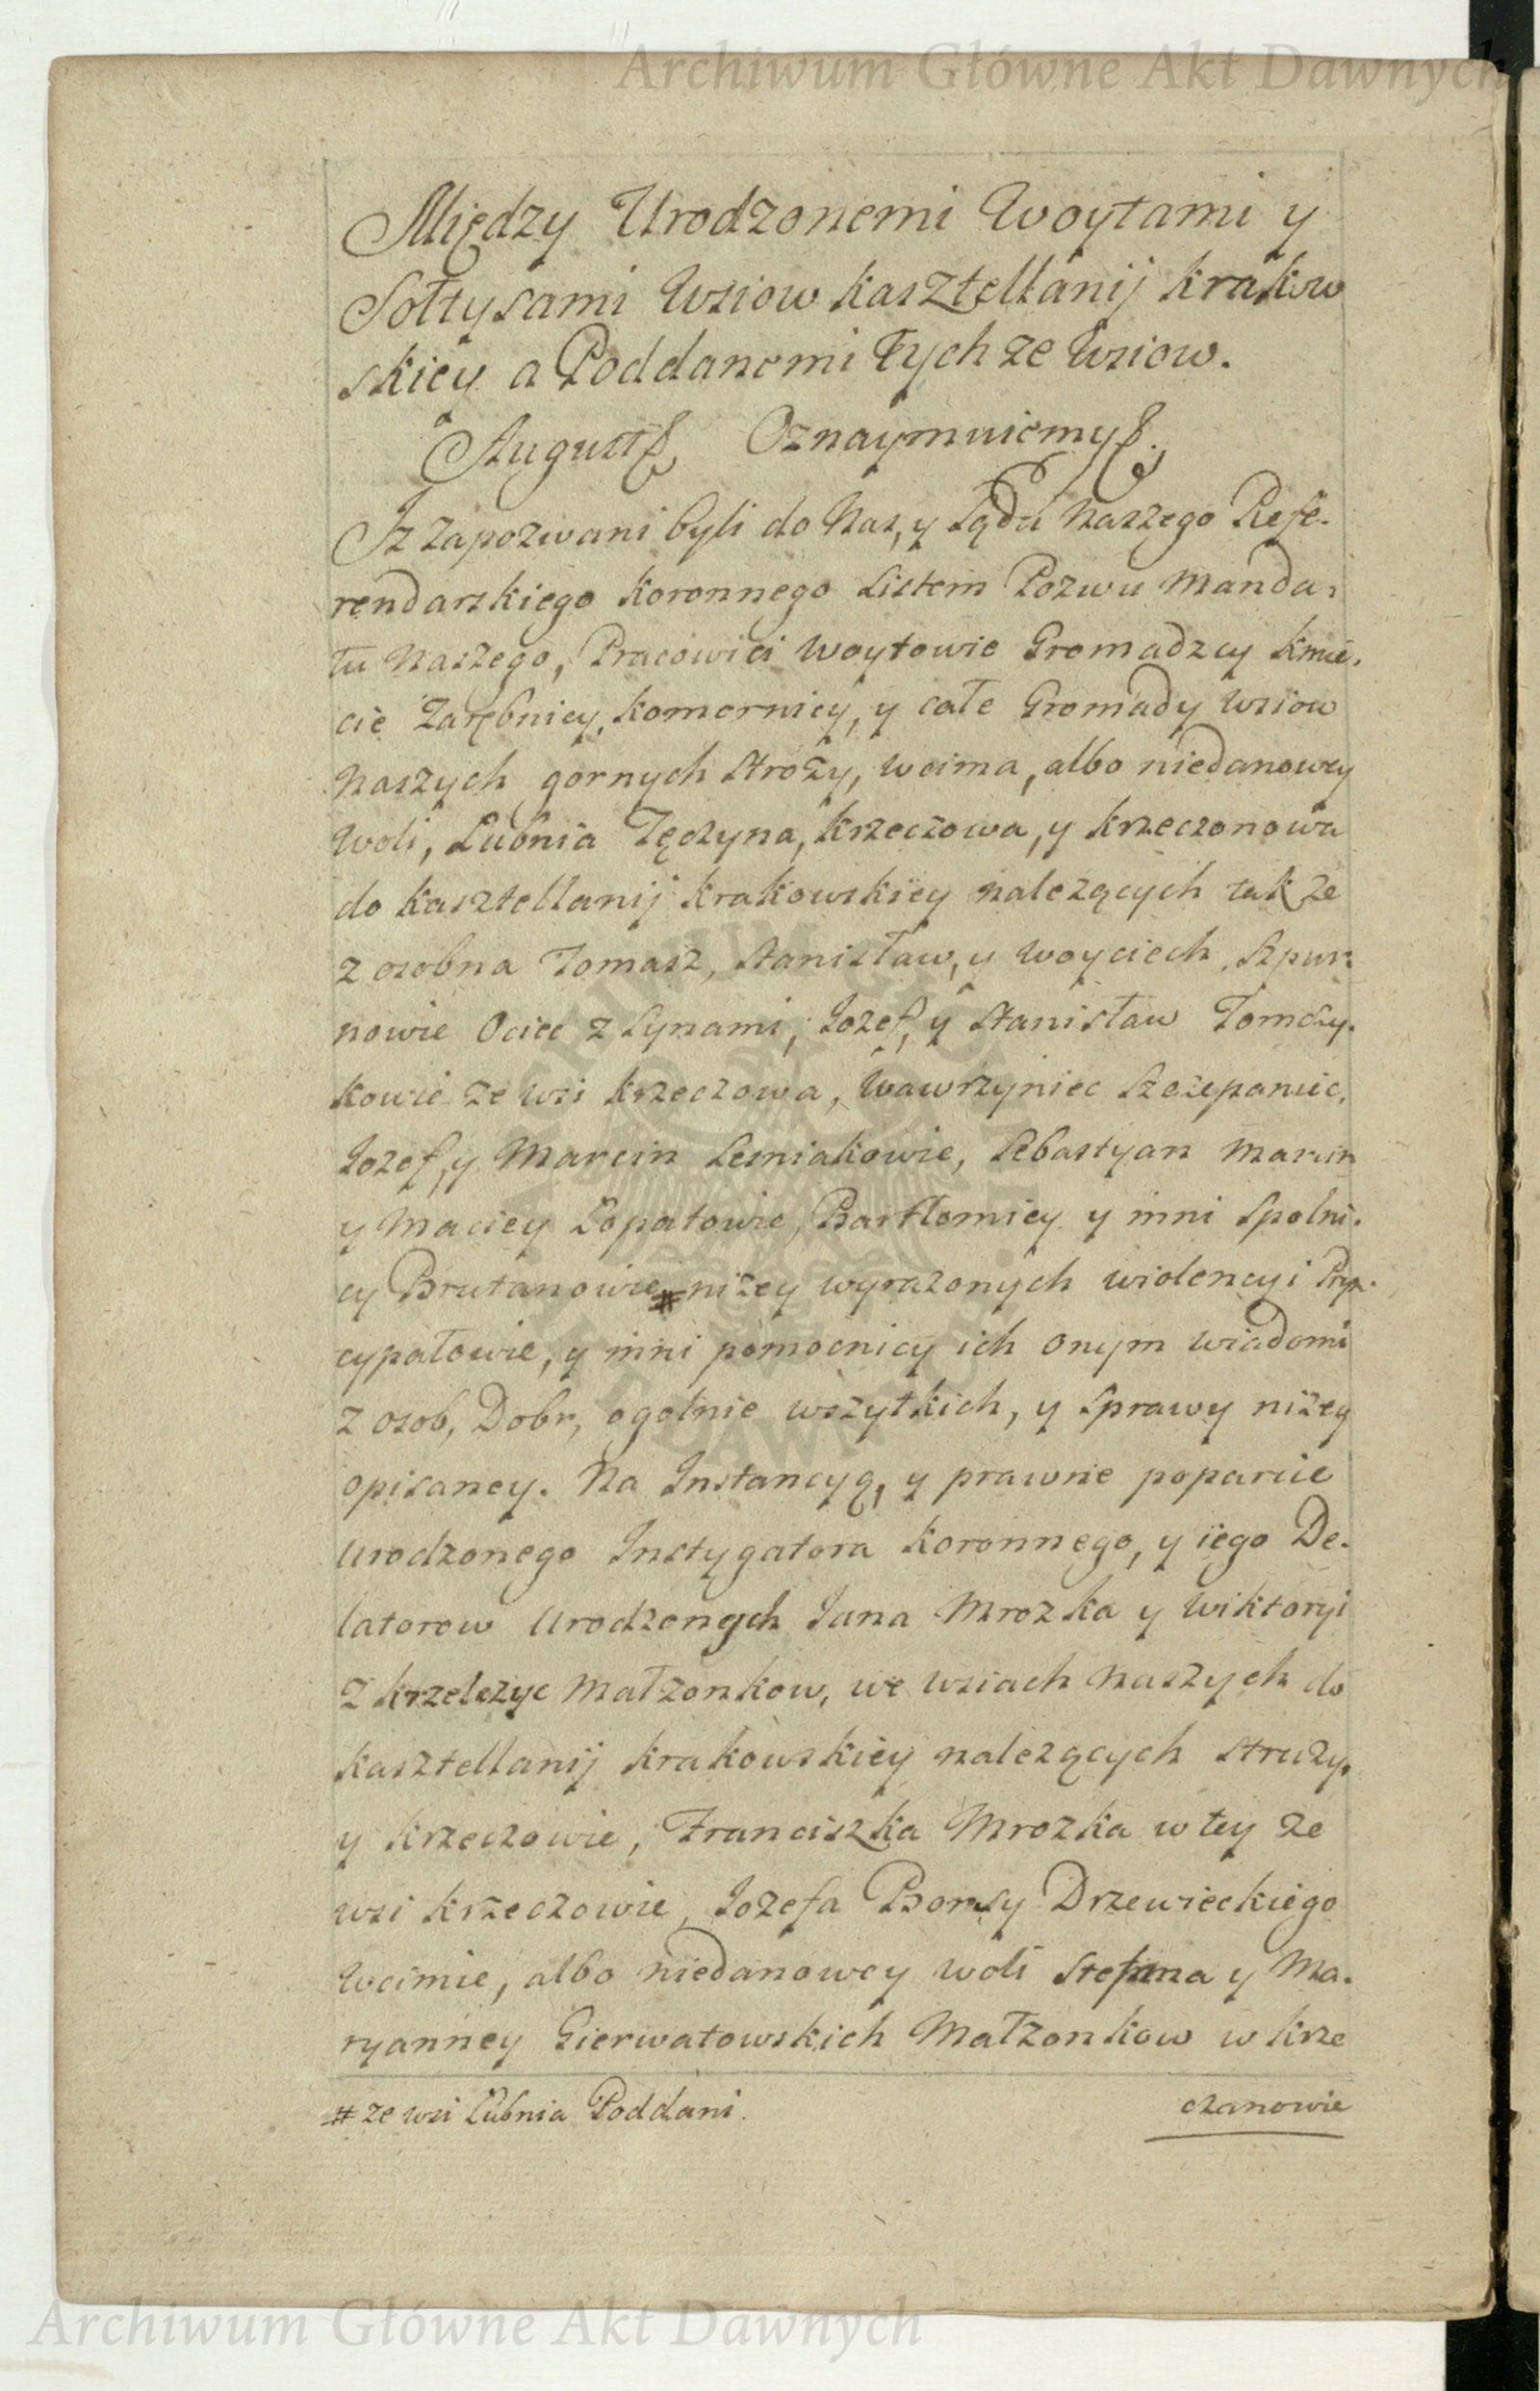 Archiwum Główne Akt Dawnych
Między Urodzonemi Woytami y
Sołtysami Wsiow Kasztellanij Krakow
skiey a Poddanemi Tych ze Wsiow.
August Oznaymuiemy
Iz zapozwani byli do Nas, y Sądu Naszego Refe-
rendarskiego Koronnego Listem Pozwu Manda-
tu Naszego, Pracowici Woytowie Gromadzcy Kmie-
cie Zarębnicy, Komornicy, y całe Gromady Wsiow
Naszych gornych Stroży, Wcima, albo niedanowey
Woli, Lubnia Tęczyna, Krzeczowa, y Krzeczonowa
do Kasztellanij Krakowskiey należących tak że
z osobna Tomasz, Stanisław, y Woyciech, Szpur-
nowie Ociec z Synami, Iozef, y Stanisław Tomczy-
kowie ze wsi Krzeczowa, Wawrzyniec Szczepaniec,
Iozef, y Marcin Lesniakowie, Sebastyan Marcin
y Maciey Łopatowie, Bartłomiey y inni Spolni-
cy Brutanowie # niżey wyrażonych wiolencyi Pryn-
cypałowie, y inni pomocnicy ich onym wiadomi
z osob, Dobr, ogolnie wszytkich, y Sprawy niżey
opisaney. Na Instancyą, y prawne poparcie
Urodzonego Instygatora Koronnego, y iego De-
latorow Urodzonych Iana Mrozka y Wiktoryi
z Krzelczyc Małżonkow, we wsiach Naszych do
Kasztellanij Krakowskiey należących Struży,
y Krzeczowie, Franciszka Mrozka w tey że
wsi Krzeczowie, Iozefa Borsy Drzewieckiego
Wcimie, albo niedanowey Woli Stefana y Ma-
ryanney Gierwatowskich Małżonkow w Krze
# ze wsi Lubnia Poddani.
czanowie
Archiwum Główne Akt Dawnych